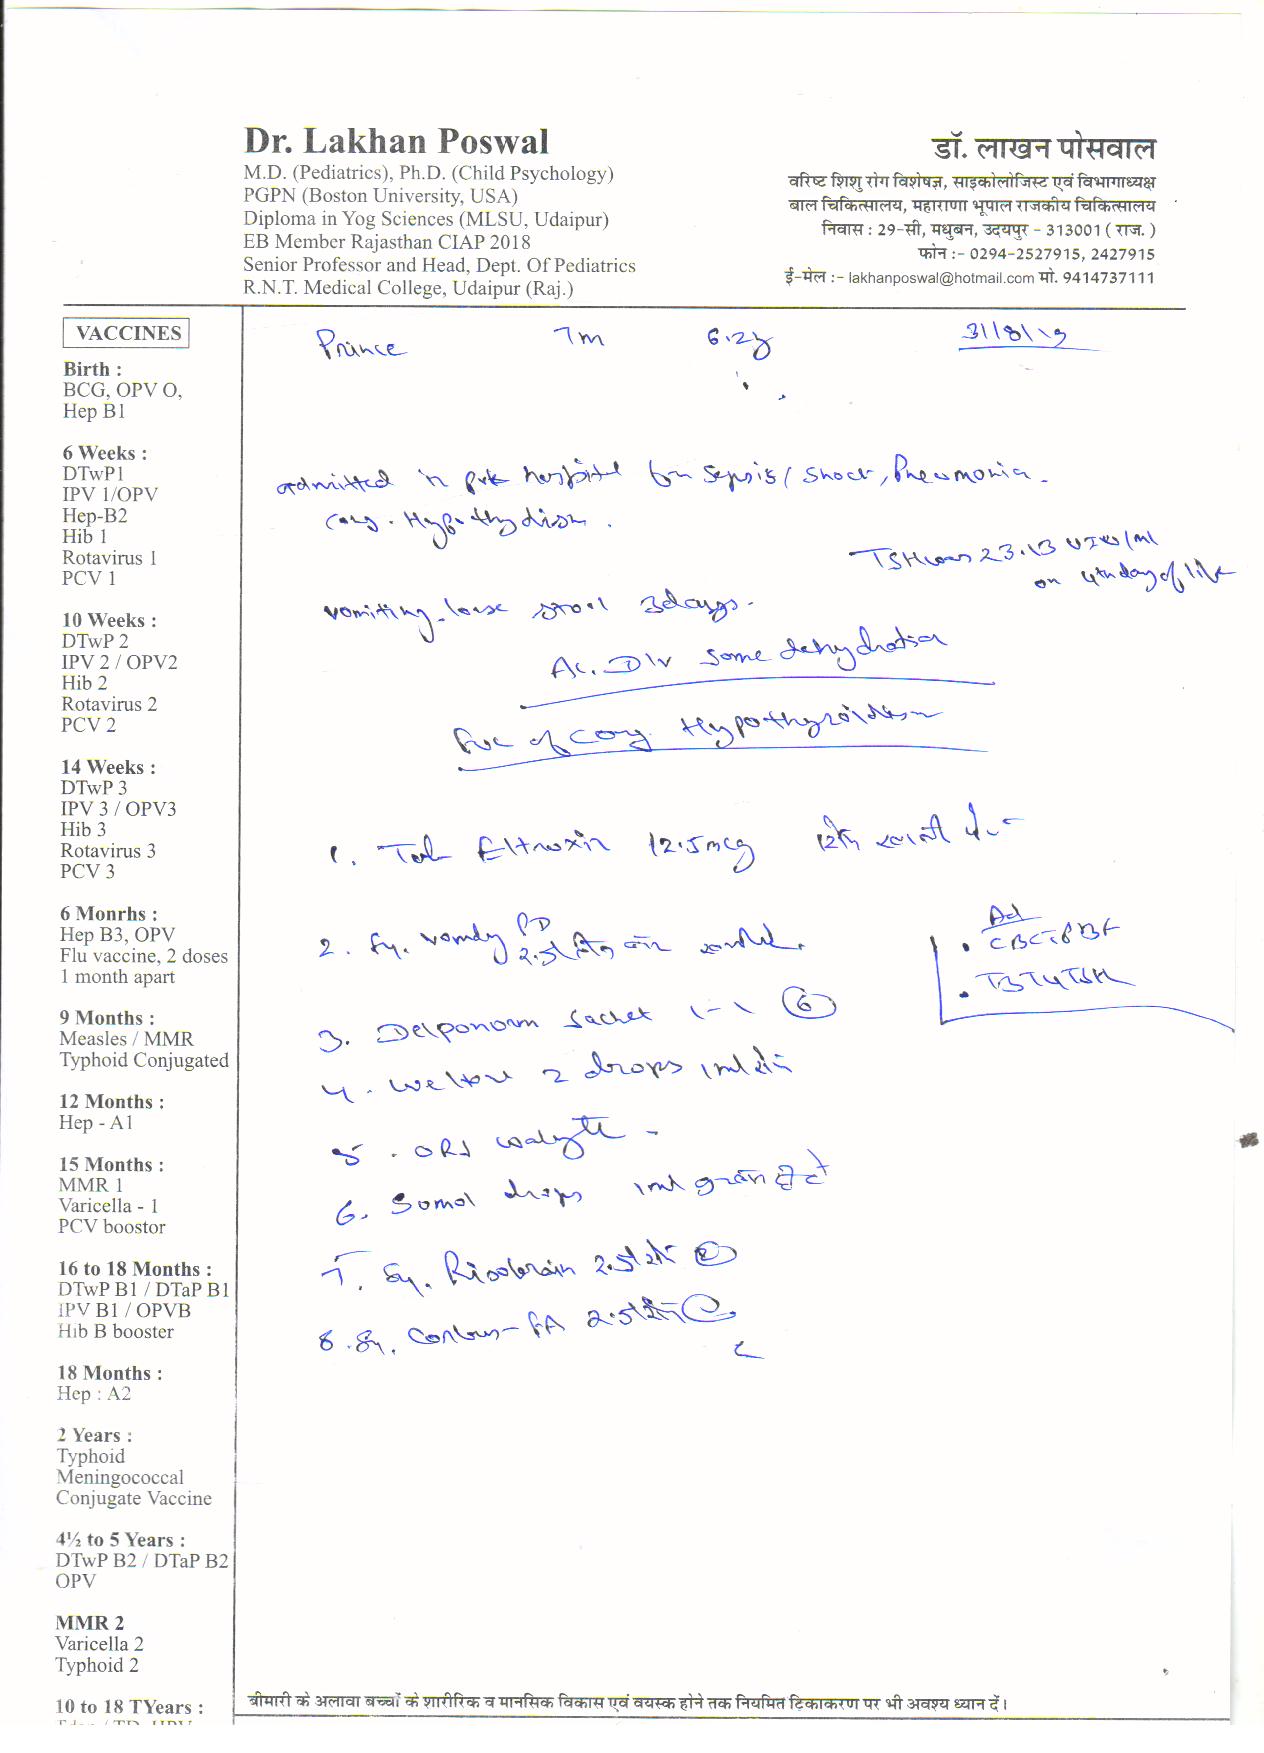 Dr. Lakhan Poswal
M.D. (Pediatrics), Ph.D. (Child Psychology)
PGPN (Boston University, USA)
Diploma in Yog Sciences (MLSU, Udaipur)
EB Member Rajasthan CIAP 2018
Senior Professor and Head, Dept. Of Pediatrics
R.N.T. Medical College, Udaipur (Raj.)
डॉ. लाखन पोसवाल
वरिष्ट शिशु रोग विशेषज्ञ, साइकोलोजिस्ट एवं विभागाध्यक्ष
बाल चिकित्सालय, महाराणा भूपाल राजकीय चिकित्सालय
निवास : 29-सी, मधुबन, उदयपुर - 313001 ( राज. )
फोन :- 0294-2527915, 2427915
ई-मेल :- lakhanposwal@hotmail.com मो. 9414737111
VACCINES
Birth :
BCG, OPV O,
Hep B1
6 Weeks :
DTwP1
IPV 1/OPV
Hep-B2
Hib 1
Rotavirus 1
PCV 1
10 Weeks :
DTwP 2
IPV 2 / OPV2
Hib 2
Rotavirus 2
PCV 2
14 Weeks :
DTwP 3
IPV 3 / OPV3
Hib 3
Rotavirus 3
PCV 3
6 Monrhs :
Hep B3, OPV
Flu vaccine, 2 doses
1 month apart
9 Months :
Measles / MMR
Typhoid Conjugated
12 Months :
Hep - A1
15 Months :
MMR 1
Varicella - 1
PCV boostor
16 to 18 Months :
DTwP B1 / DTaP B1
IPV B1 / OPVB
Hib B booster
18 Months :
Hep : A2
2 Years :
Typhoid
Meningococcal
Conjugate Vaccine
4½ to 5 Years :
DTwP B2 / DTaP B2
OPV
MMR 2
Varicella 2
Typhoid 2
10 to 18 TYears :
Prince 7m 31/8/19
admitted in pvt hospital for sepsis / shock, Pneumonia.
TSH was 23.13
on 4th day of life
vomiting loose stool 3 days.
Ac. D/V some dehydration
of Cong. Hypothyroidism
1. Tab Eltroxin 12.5mcg
2. Sy. vomdy PD 2.5
3. Delponorm sachet 1-1 6
Ad
T3 T4 TSH
4. 2 drops 1ml
5. ORS walyte
6. Sumol drops 1ml
7. Sy. 2.5
8. Sy. 2.5
बीमारी के अलावा बच्चों के शारीरिक व मानसिक विकास एवं वयस्क होने तक नियमित टिकाकरण पर भी अवश्य ध्यान दें।